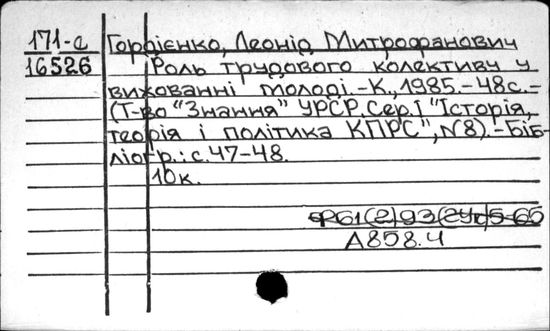 171-а Гордієнко, Леонід Митрофанович
16526 Роль трудового колективу у
вихованні молоді.-К.,1985.-48с.-
(Т-во "Знання" УРСР. Сер.1 "Історія,
теорія і політика КПРС", №8).-Біб-
ліогр.: с.47-48.
10к.
А858.4